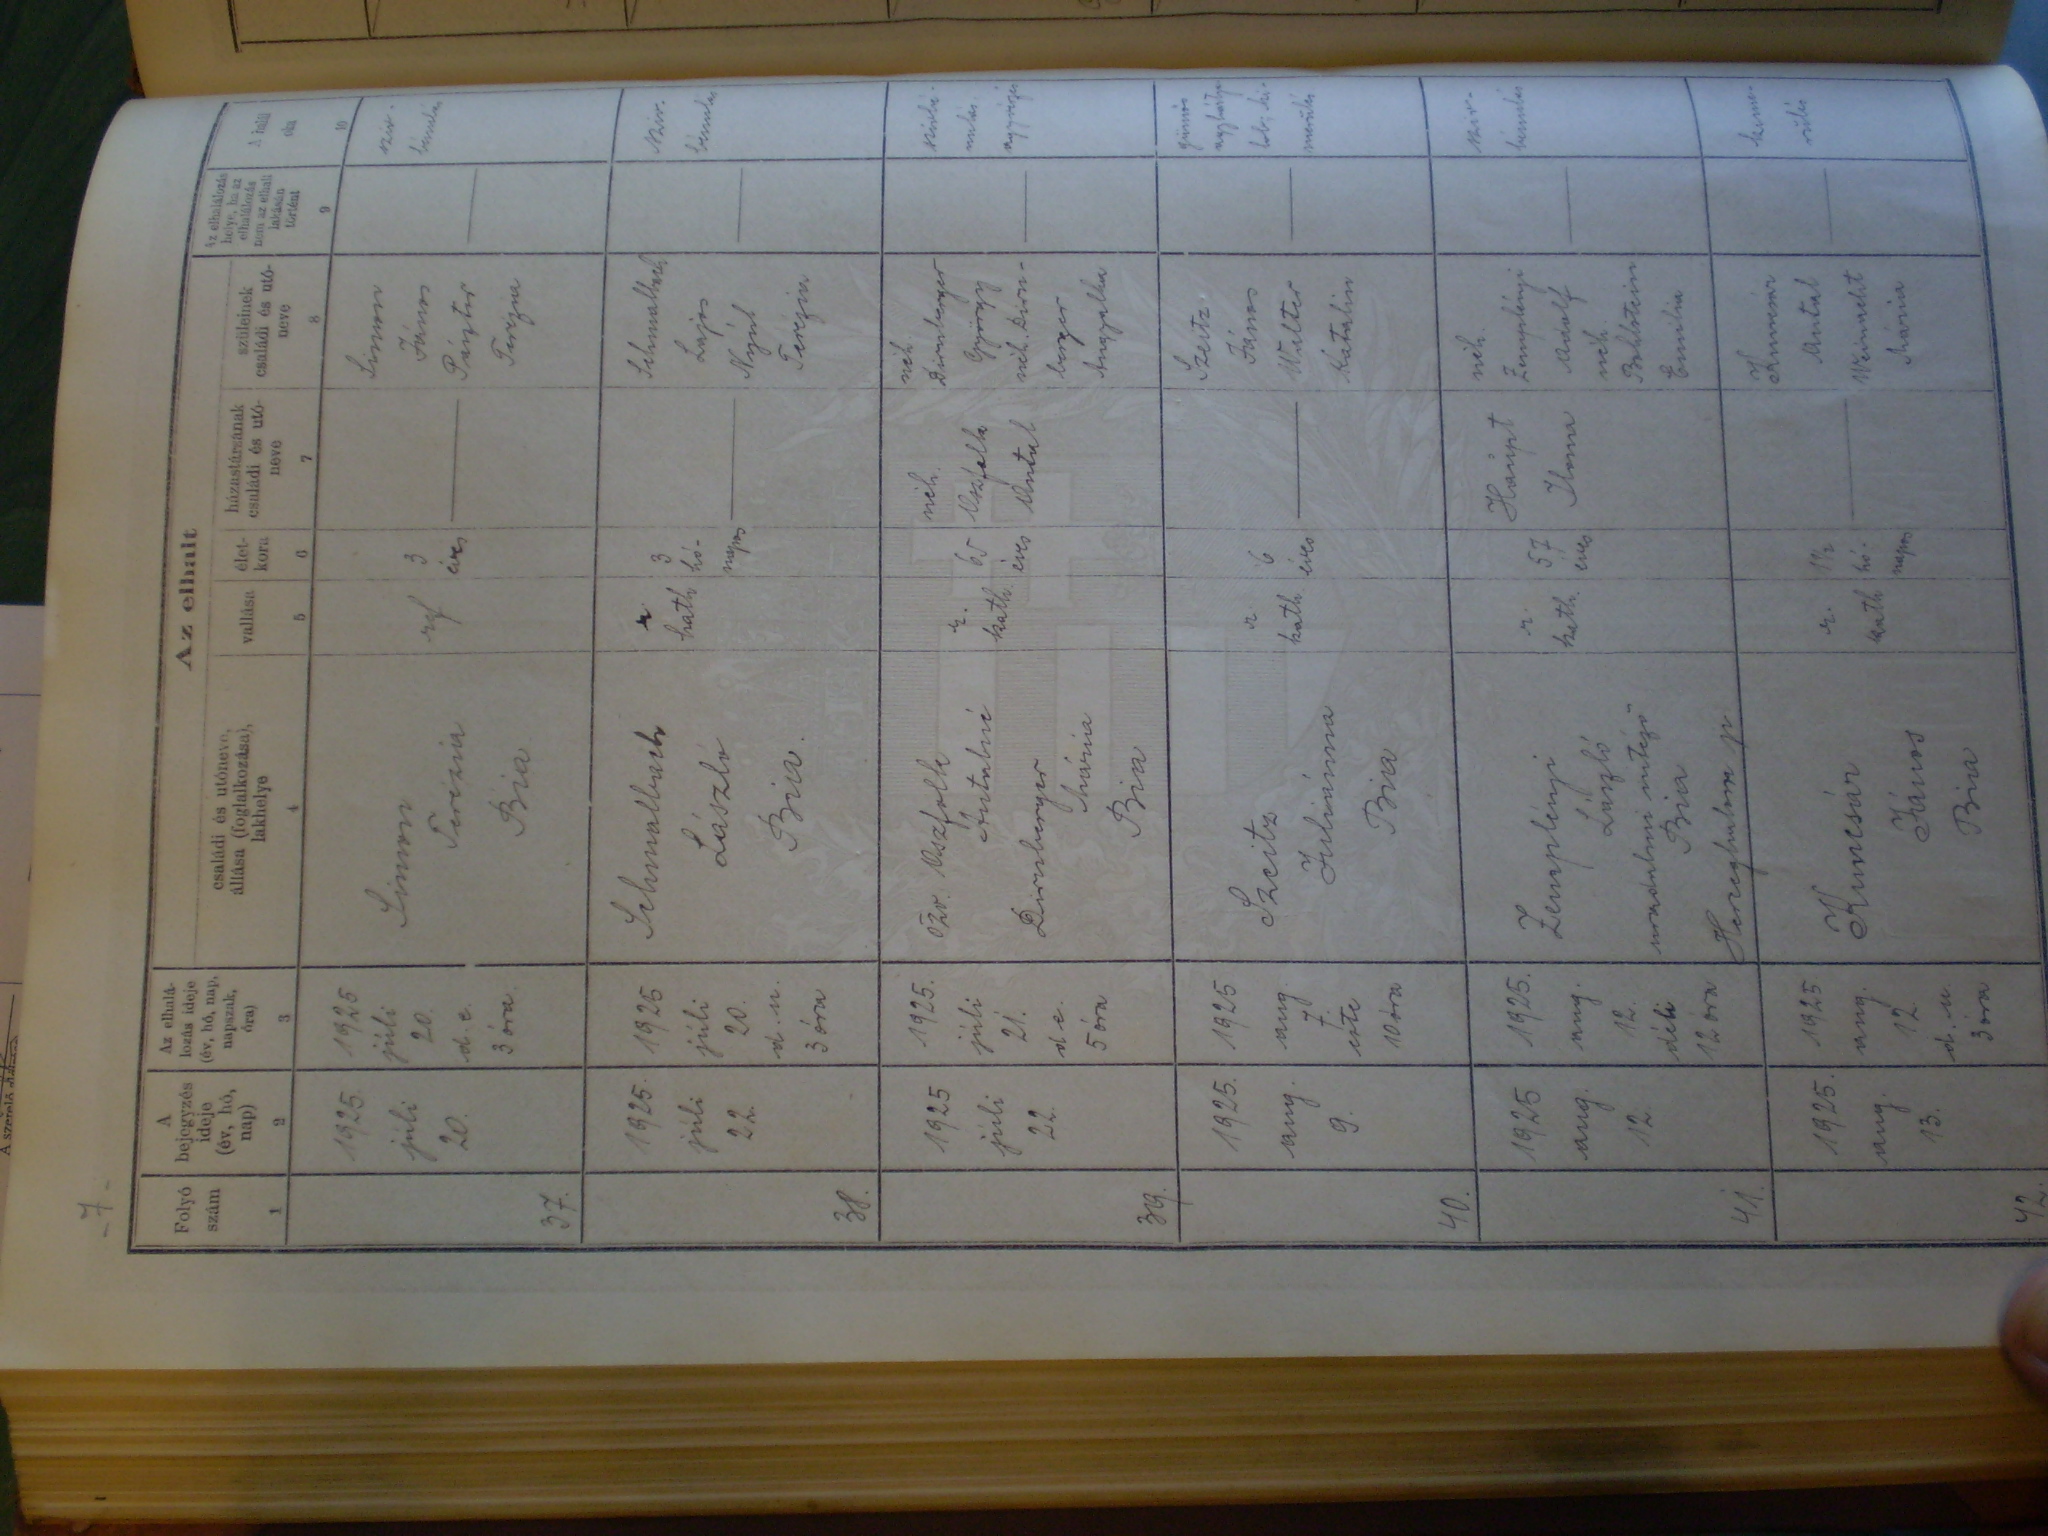 - 7 -
Az elhalt
Folyó
szám
A
bejegyzés
ideje
(év, hó,
nap)
Az elhalá-
lozás ideje
(év, hó, nap,
napszak,
óra)
családi és utóneve,
állása (foglalkozása),
lakhelye
vallása
élet-
kora
házastársának
családi és utó-
neve
szüleinek
családi és utó-
neve
Az elhalálozás
helye, ha az
elhalálozás
nem az elhalt
lakásán
történt
A halál
oka
1
2
3
4
5
6
7
8
9
10
37.
1925.
júli
20.
1925
júli
20.
d. e.
3 óra.
Simon
Terézia
Bia
ref
3
éves
Simon
János
Pásztor
Terézia
sziv-
bénulás
38.
1925.
júli
22.
1925
júli
20.
d. u.
3 óra
Schmalbach
László
Bia.
r.
kath
3
hó-
napos
Schmalbach
Lajos
Nyúl
Terézia
sziv-
bénulás
39.
1925
júli
22.
1925.
júli
21.
d e.
5 óra
Özv. Oszfolk
Antalné
Dürnberger
Mária
Bia
r.
kath.
65
éves
néh.
Oszfolk
Antal
néh.
Dürnberger
György
néh. Dürn-
berger
Angyalka
40.
1925.
aug.
9.
1925
aug.
7.
este
10 óra
Szeitz
Juliánna
Bia
r
kath.
6
éves
Szeitz
János
Walter
Katalin
41.
1925
aug.
12.
1925.
aug.
12.
déli
12 óra
Zemplényi
László
uradalmi intéző
Bia
Herceghalom p.
r
kath.
57
éves
Haupt
Ilona
néh.
Zemplényi
Adolf
néh.
Emilia
sziv-
bénulás
42.
1925.
aug.
13.
1925.
aug.
12
d. u.
3 óra
János
Bia
r.
kath
1½
hó-
napos
Antal
Weinacht
Mária
kime-
rülés